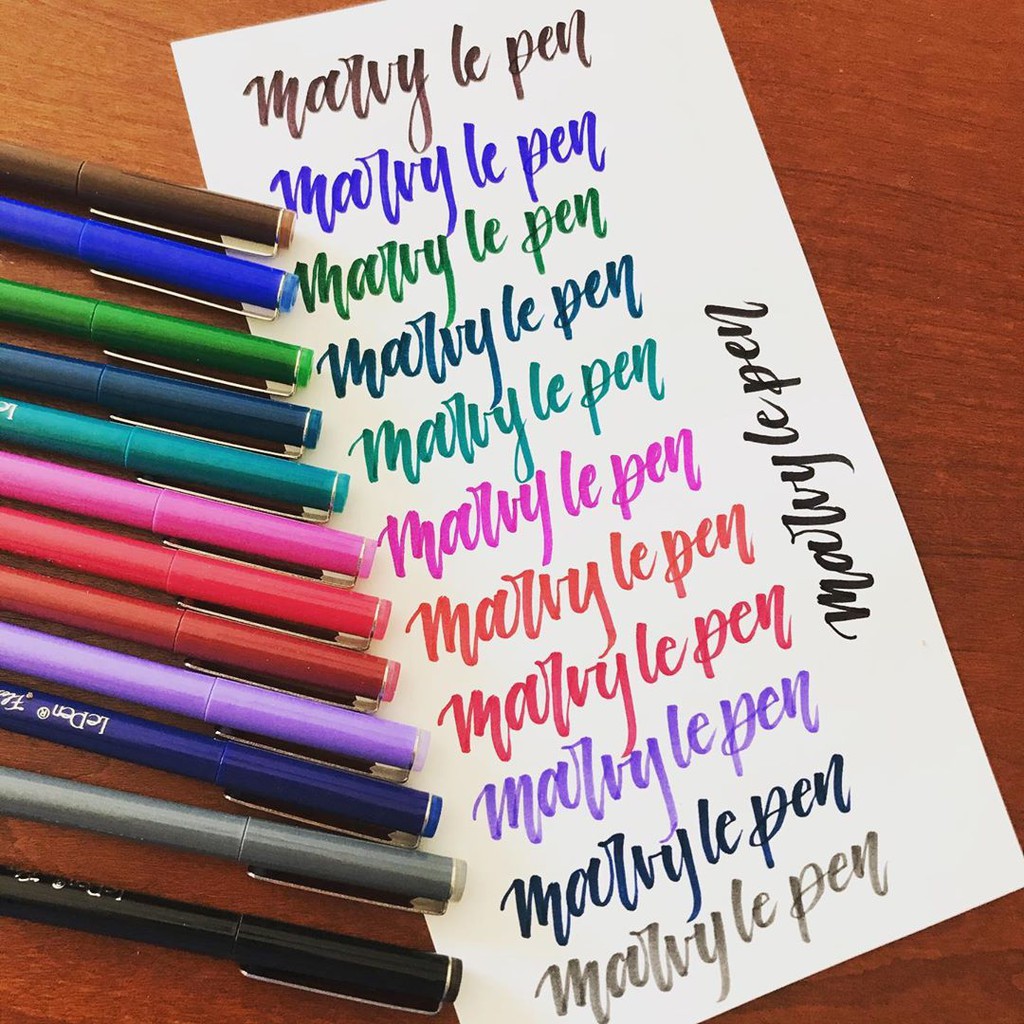 marvy le pen
marvy le pen
marvy le pen
marvy le pen
marvy le pen
marvy le pen
marvy le pen
marvy le pen
marvy le pen
marvy le pen
marvy le pen
marvy le pen
LePen®